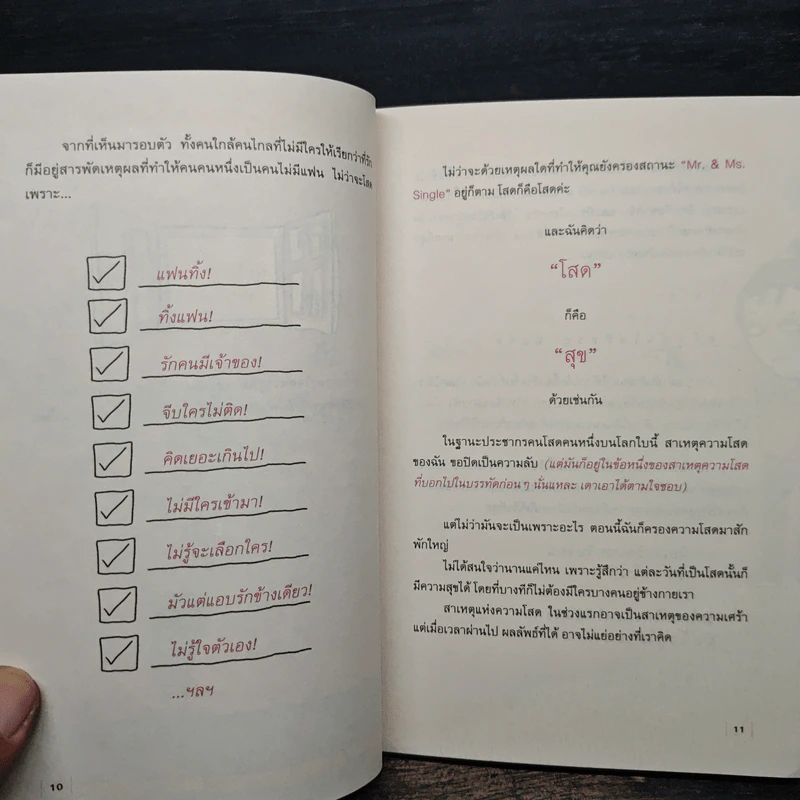 จากที่เห็นมารอบตัว ทั้งคนใกล้คนไกลที่ไม่มีใครให้เรียกว่าที่รัก
ก็มีอยู่สารพัดเหตุผลที่ทำให้คนคนหนึ่งเป็นคนไม่มีแฟน ไม่ว่าจะโสด
เพราะ...
แฟนทิ้ง!
ทิ้งแฟน!
รักคนมีเจ้าของ!
จีบใครไม่ติด!
คิดเยอะเกินไป!
ไม่มีใครเข้ามา!
ไม่รู้จะเลือกใคร!
มัวแต่แอบรักข้างเดียว!
ไม่รู้ใจตัวเอง!
...ฯลฯ
10
ไม่ว่าจะด้วยเหตุผลใดที่ทำให้คุณยังครองสถานะ “Mr. & Ms.
Single” อยู่ก็ตาม โสดก็คือโสดค่ะ
และฉันคิดว่า
“โสด”
ก็คือ
“สุข”
ด้วยเช่นกัน
ในฐานะประชากรคนโสดคนหนึ่งบนโลกใบนี้ สาเหตุความโสด
ของฉัน ขอปิดเป็นความลับ (แต่มันก็อยู่ในข้อหนึ่งของสาเหตุความโสด
ที่บอกไปในบรรทัดก่อนๆ นั่นแหละ เดาเอาได้ตามใจชอบ)
แต่ไม่ว่ามันจะเป็นเพราะอะไร ตอนนี้ฉันก็ครองความโสดมาสัก
พักใหญ่
ไม่ได้สนใจว่านานแค่ไหน เพราะรู้สึกว่า แต่ละวันที่เป็นโสดนั้นก็
มีความสุขได้ โดยที่บางทีก็ไม่ต้องมีใครบางคนอยู่ข้างกายเรา
สาเหตุแห่งความโสด ในช่วงแรกอาจเป็นสาเหตุของความเศร้า
แต่เมื่อเวลาผ่านไป ผลลัพธ์ที่ได้ อาจไม่แย่อย่างที่เราคิด
11